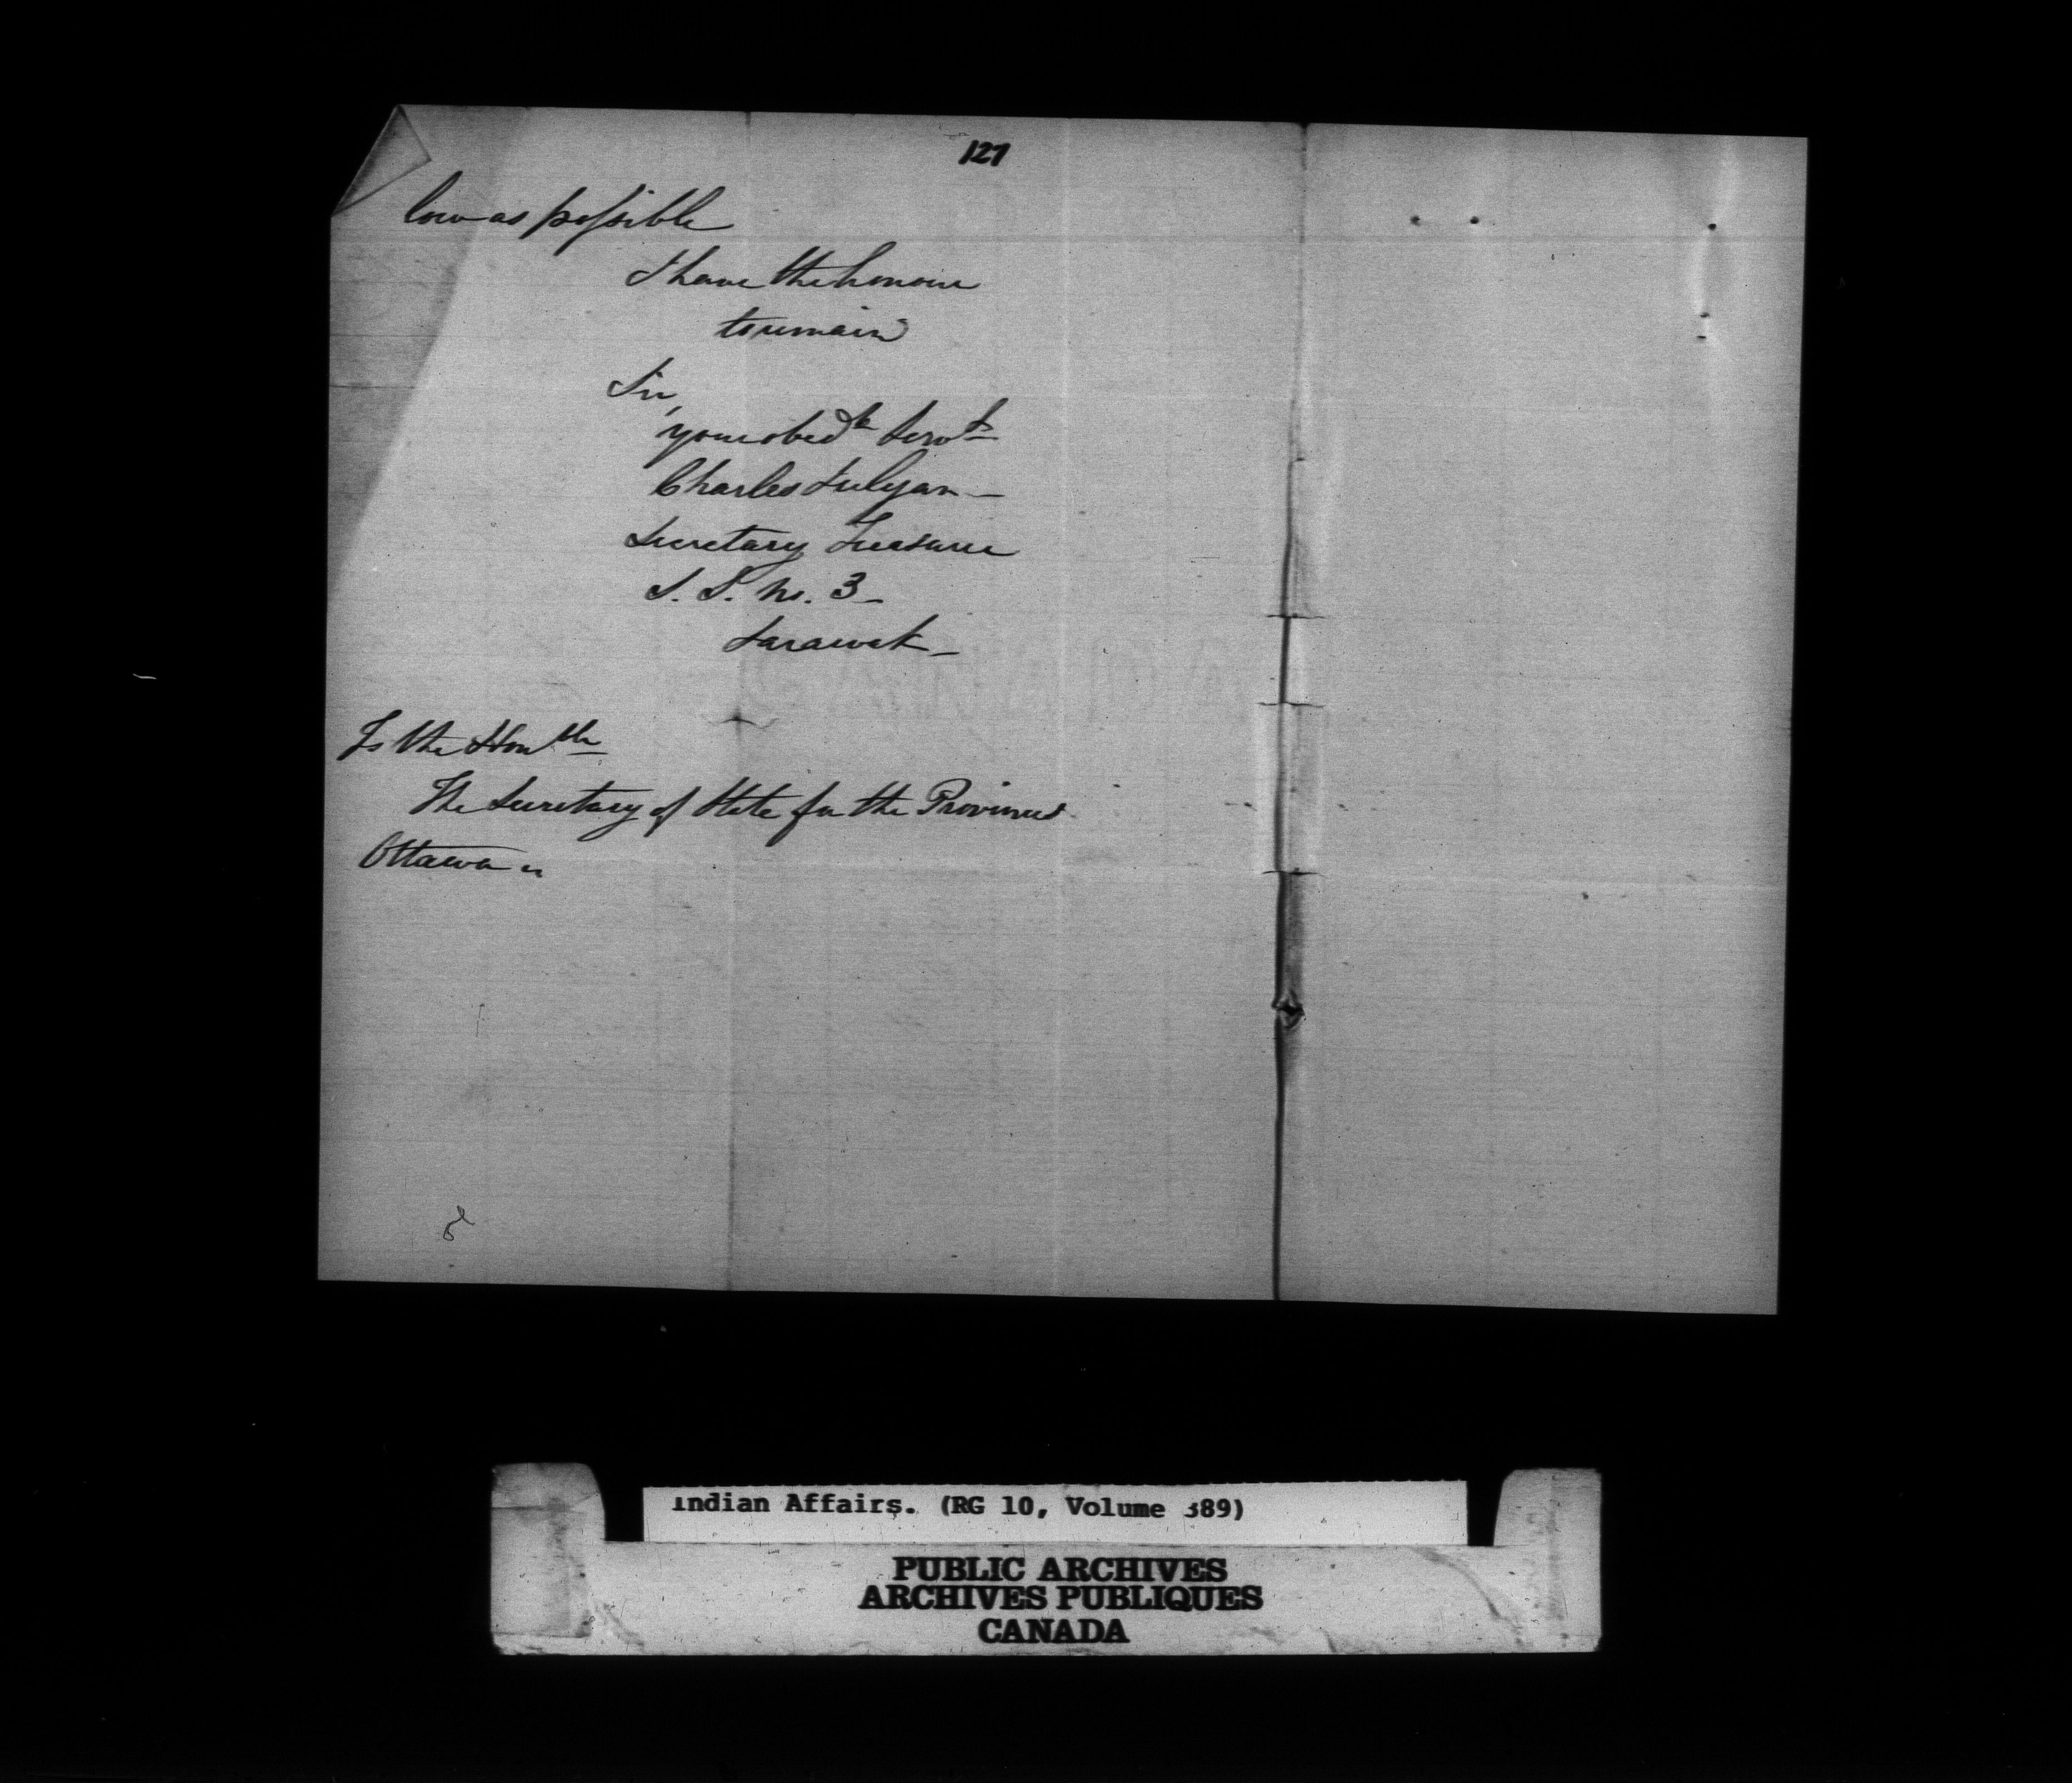 127
low as possible
I have the honour
to remain
Sir,
your obedt Servt
Charles Julyan
Secretary Treasurer
S. S. No. 3
Sarawak
To the Honble
The Secretary of State for the Provinces
Ottawa
Indian Affairs. (RG 10, Volume 389)
PUBLIC ARCHIVES
ARCHIVES PUBLIQUES
CANADA